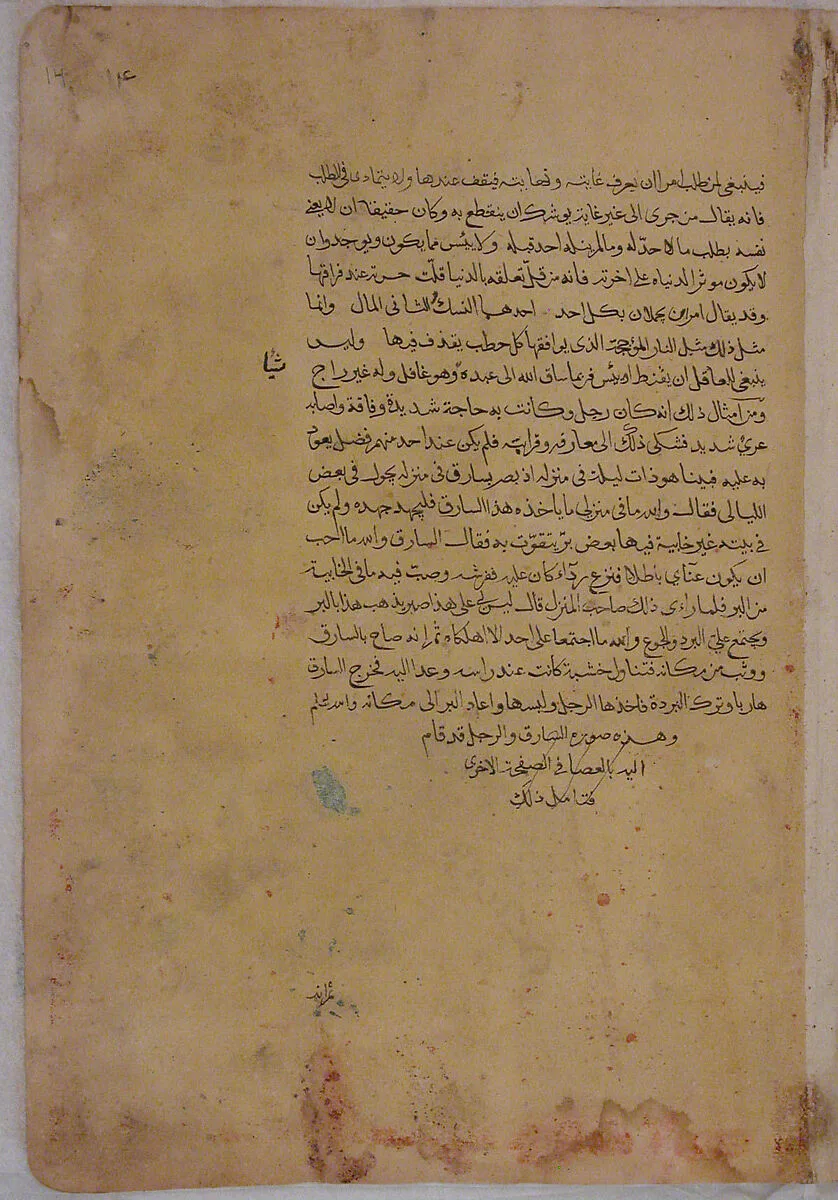 ١٤ ١٣
فينبغى لمن طلب امرا ان يعرف غايته ونهايته فيقف عندها ولا يتمادى فى الطلب
فانه يقال من جرى الى غير غاية يوشك ان ينقطع به وكان حقيقا ان لا يعنى
نفسه بطلب ما لا حد له وما لم ينله احد قبله ولا ييئس مما يكون ويوجد وان
لا يكون موثر الدنياه على اخرته فانه من قل تعلقه بالدنيا قلت حسرته عند فراقها
وقد يقال امران يجملان بكل احد احدهما النسك والثانى المال وانما
مثل ذلك مثل النار المؤججة الذى يوافقها كل حطب يقذف فيها وليس
شيأ
ينبغى للعاقل ان يقنط او ييئس فربما ساق الله الى عبده وهو غافل وله غير راج
ومن امثال ذلك انه كان رجل وكانت به حاجة شديدة وفاقة واصابه
عري شديد فشكى ذلك الى معارفه وقرابته فلم يكن عند احد منهم فضل يعود
به عليه فبينا هو ذات ليلة فى منزله اذ بصر بسارق فى منزله يجول فى بعض
الليالى فقال والله ما فى منزلى ما ياخذه هذا السارق فليجهد جهده ولم يكن
فى بيته غير خابية فيها بعض بر يتقوت به فقال السارق والله ما احب
ان يكون عنآى باطلا فنزع رداء كان عليه ففرشه وصب فيه ما فى الخابية
من البر فلما راى ذلك صاحب المنزل قال ليس لى على هذا صبر يذهب هذا بالبر
ويجتمع علي البرد والجوع والله ما اجتمعا على احد الا اهلكاه ثم انه صاح بالسارق
ووثب من مكانه فتناول خشبة كانت عند راسه وعدا اليه فخرج السارق
هاربا وترك البردة فاخذها الرجل ولبسها واعاد البر الى مكانه والله يعلم
وهذه صورة السارق والرجل قد قام
اليه بالعصا فى الصفحة الاخرى
فتامل ذلك
ثم انه